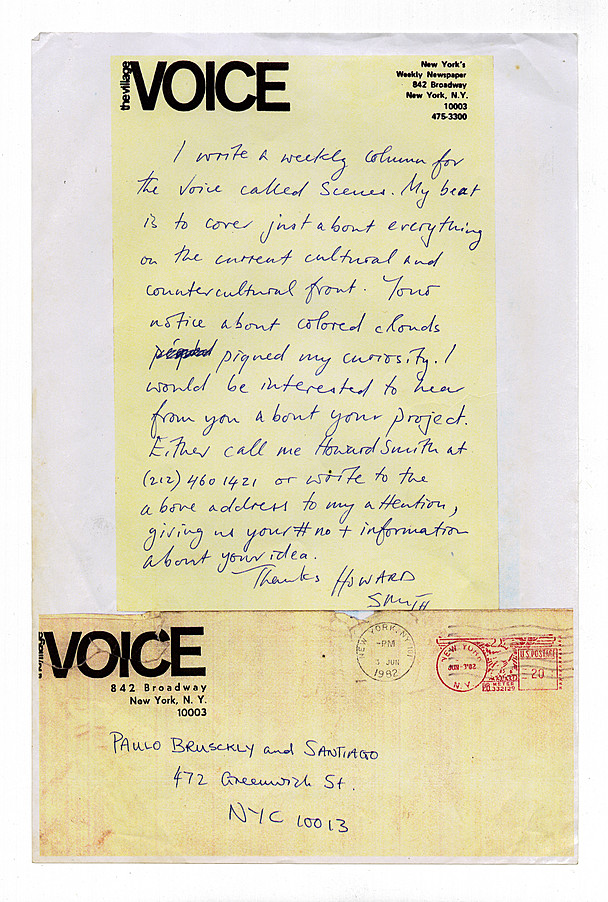 the village VOICE
New York's
Weekly Newspaper
842 Broadway
New York, N.Y.
10003
475-3300
I write a weekly column for
the Voice called Scenes. My beat
is to cover just about everything
on the current cultural and
countercultural front. Your
notice about colored clouds
piqued my curiosity. I
would be interested to hear
from you about your project.
Either call me Howard Smith at
(212) 460 1421 or write to the
above address to my attention,
giving us your # no + information
about your idea.
Thanks HOWARD
SMITH
VOICE
842 Broadway
New York, N.Y.
10003
NEW YORK, NY
-PM
3 JUN
1982
NEW YORK
JUN-3'82
N.Y.
U.S. POSTAGE
20
METER
332129
PAULO BRUSCKLY and SANTIAGO
472 Greenwich St.
NYC 10013